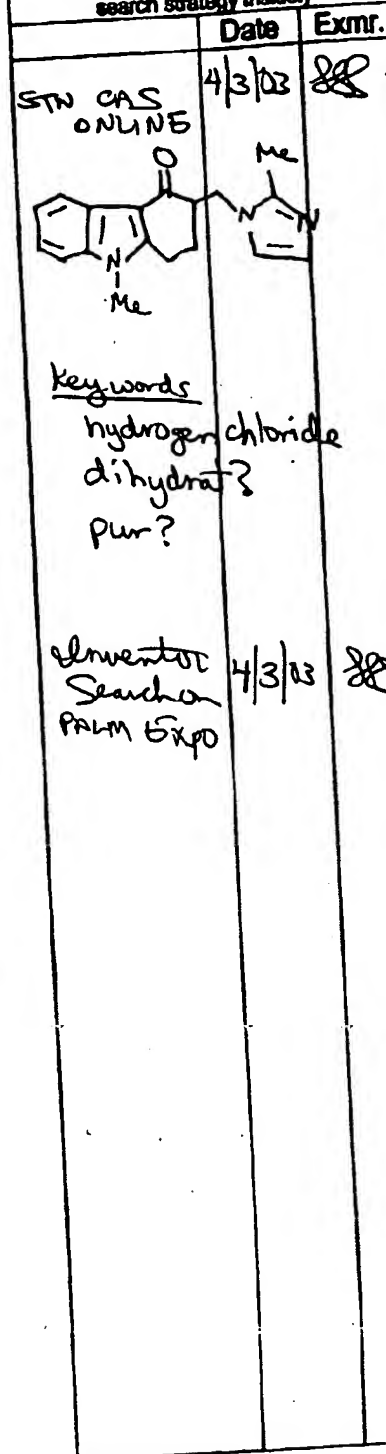 search strategy
Date Exmr.
STN CAS 4/3/03
ONLINE
O
Me
N
N
N
Me
Keywords
hydrogen chloride
dihydrat?
pur?
Inventor
Search on 4/3/03
PALM Expo